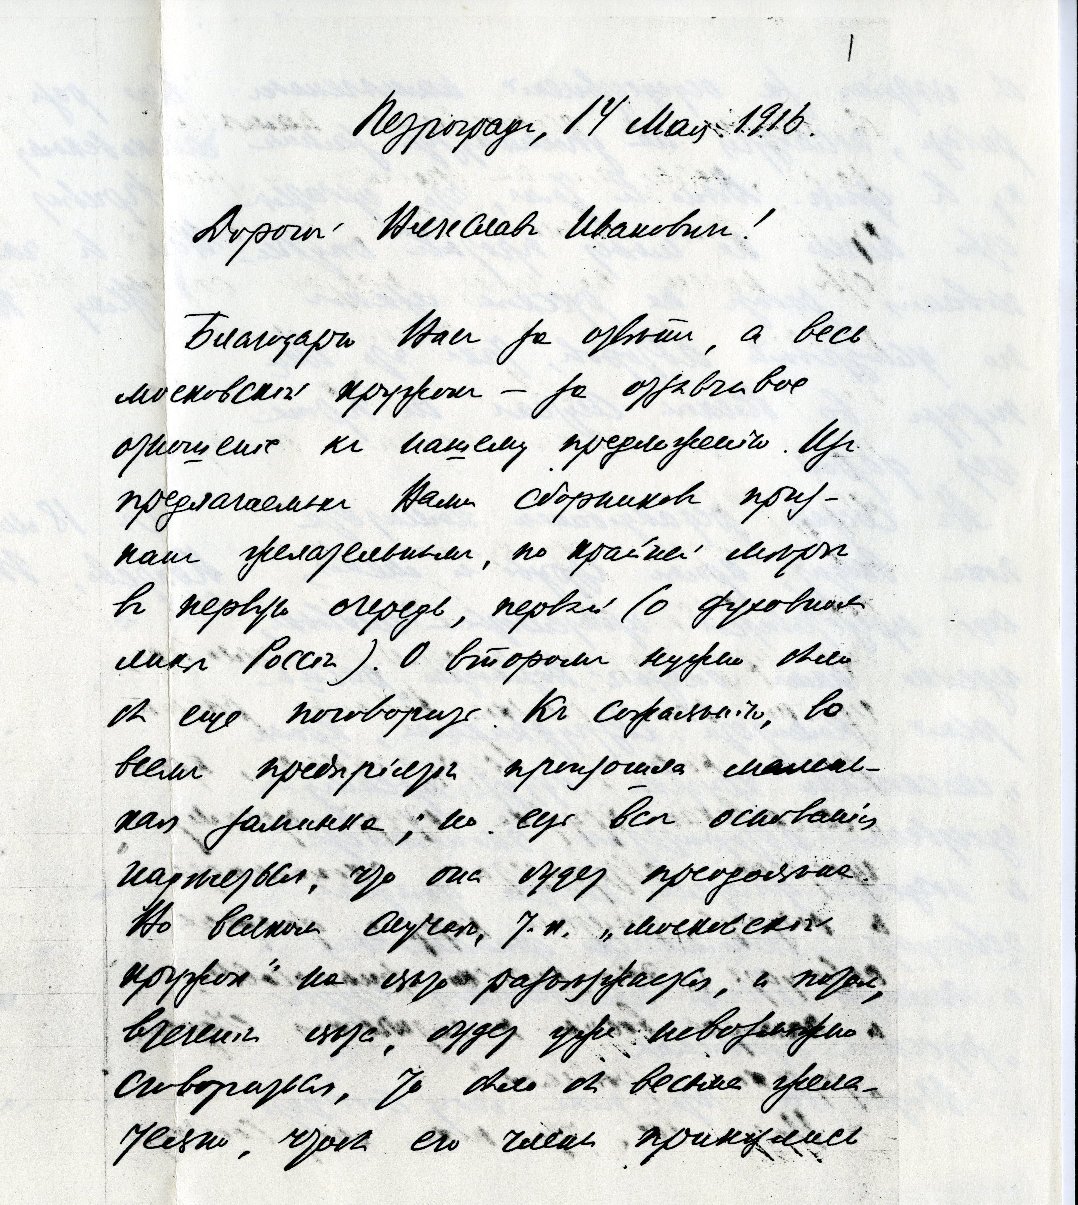 1
Петроградъ, 14 Мая 1916.
Дорогой Вячеславъ Ивановичъ!
Благодарю Васъ за отвѣтъ, а весь
московскій кружокъ – за отзывчивое
отношеніе къ нашему предложенію. Изъ
предлагаемыхъ Вами сборниковъ приз-
нанъ желательнымъ, по крайней мѣрѣ
въ первую очередь, первый (о духовномъ
ликѣ Россіи). О второмъ нужно было
бы еще поговорить. Къ сожалѣнію, во
всемъ предпріятіи произошла малень-
кая заминка; но есть всѣ основанія
надѣяться, что она будетъ преодолѣна.
Во всякомъ случаѣ, т.к. „московскій
кружокъ" на лѣто разъѣзжается, и потомъ,
въ теченіи лѣта, будетъ уже невозможно
сговориться, то было бы весьма жела-
тельно, чтобъ его члены принялись